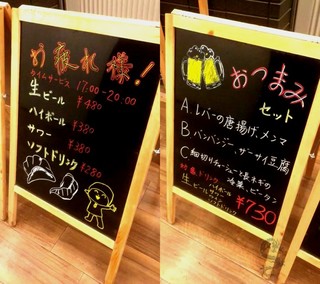 お疲れ様!
タイムサービス 17:00-20:00
生ビール
¥480
ハイボール
¥380
サワー
¥380
ソフトドリンク ¥280
おつまみ
セット
A. レバーの唐揚げ、メンマ
B バンバンジー、ザーサイ豆腐
C 細切りチャーシューと長ネギの
冷菜、ピータン
対象ドリンク
生ビール ハイボール
サワー
ソフトドリンク
¥730